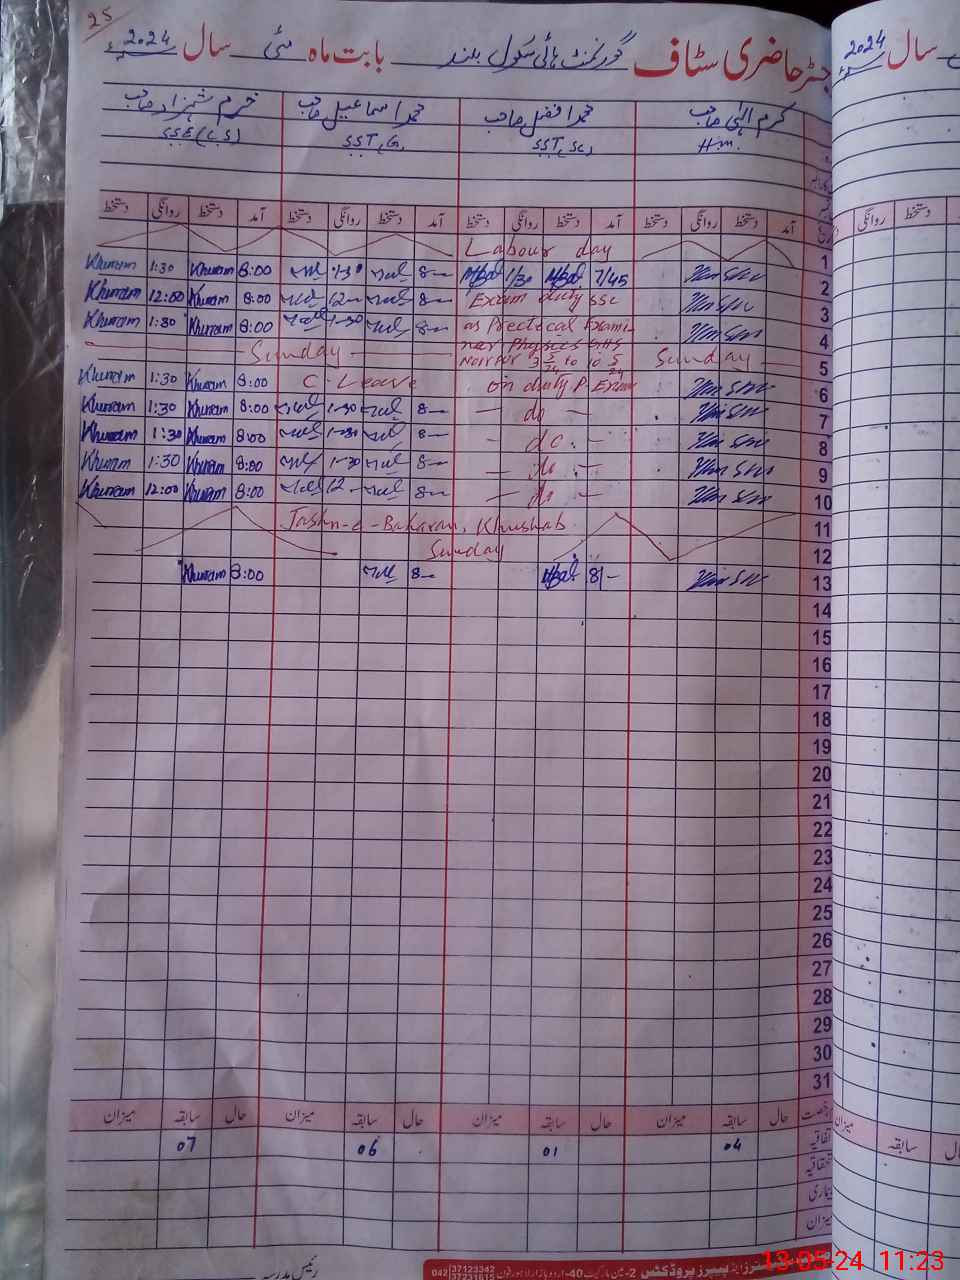 25
رجسٹر حاضری سٹاف گورنمنٹ ہائی سکول بلند بابت ماہ مئی سال 2024ء
سال 2024ء
کرم الٰہی صاحب محمد افضل صاحب محمد اسماعیل صاحب خرم شہزاد صاحب
H.M. SST(Sc) SST(G) SSE(C.S)
آمد دستخط روانگی دستخط آمد دستخط روانگی دستخط آمد دستخط روانگی دستخط آمد دستخط روانگی دستخط
دستخط روانگی
Labour day 1
Khurram 1:30 Khurram 8:00 1-30 8— 1/30 7/45 2
Khurram 12:00 Khurram 8:00 12— 8— Exam duty SSC 3
Khurram 1:30 Khurram 8:00 1-30 8— as Prectocal Exami 4
Sunday ner Physics GHS
3 5/24 to 10 5/24 Sunday 5
Khurram 1:30 Khurram 8:00 C. Leave on duty P. Exam 6
Khurram 1:30 Khurram 8:00 1-30 8— — do — 7
Khurram 1:30 Khurram 8:00 1-30 8— — do — 8
Khurram 1:30 Khurram 8:00 1-30 8— — do — 9
Khurram 12:00 Khurram 8:00 12— 8— — do — 10
Jashn-e-Baharan, Khushab 11
Sunday 12
Khurram 8:00 8— 8/— 13
14
15
16
17
18
19
20
21
22
23
24
25
26
27
28
29
30
31
رخصت حال سابقہ میزان حال سابقہ میزان حال سابقہ میزان حال سابقہ میزان
میزان سابقہ حال
اتفاقیہ 04 01 06 07
استحقاقیہ
بیماری
میزان
رئیس مدرسہ
پیپرز پروڈکٹس 2-مین مارکیٹ 40-اردو بازار لاہور فون 042 37123342 37231615
13-05-24 11:23